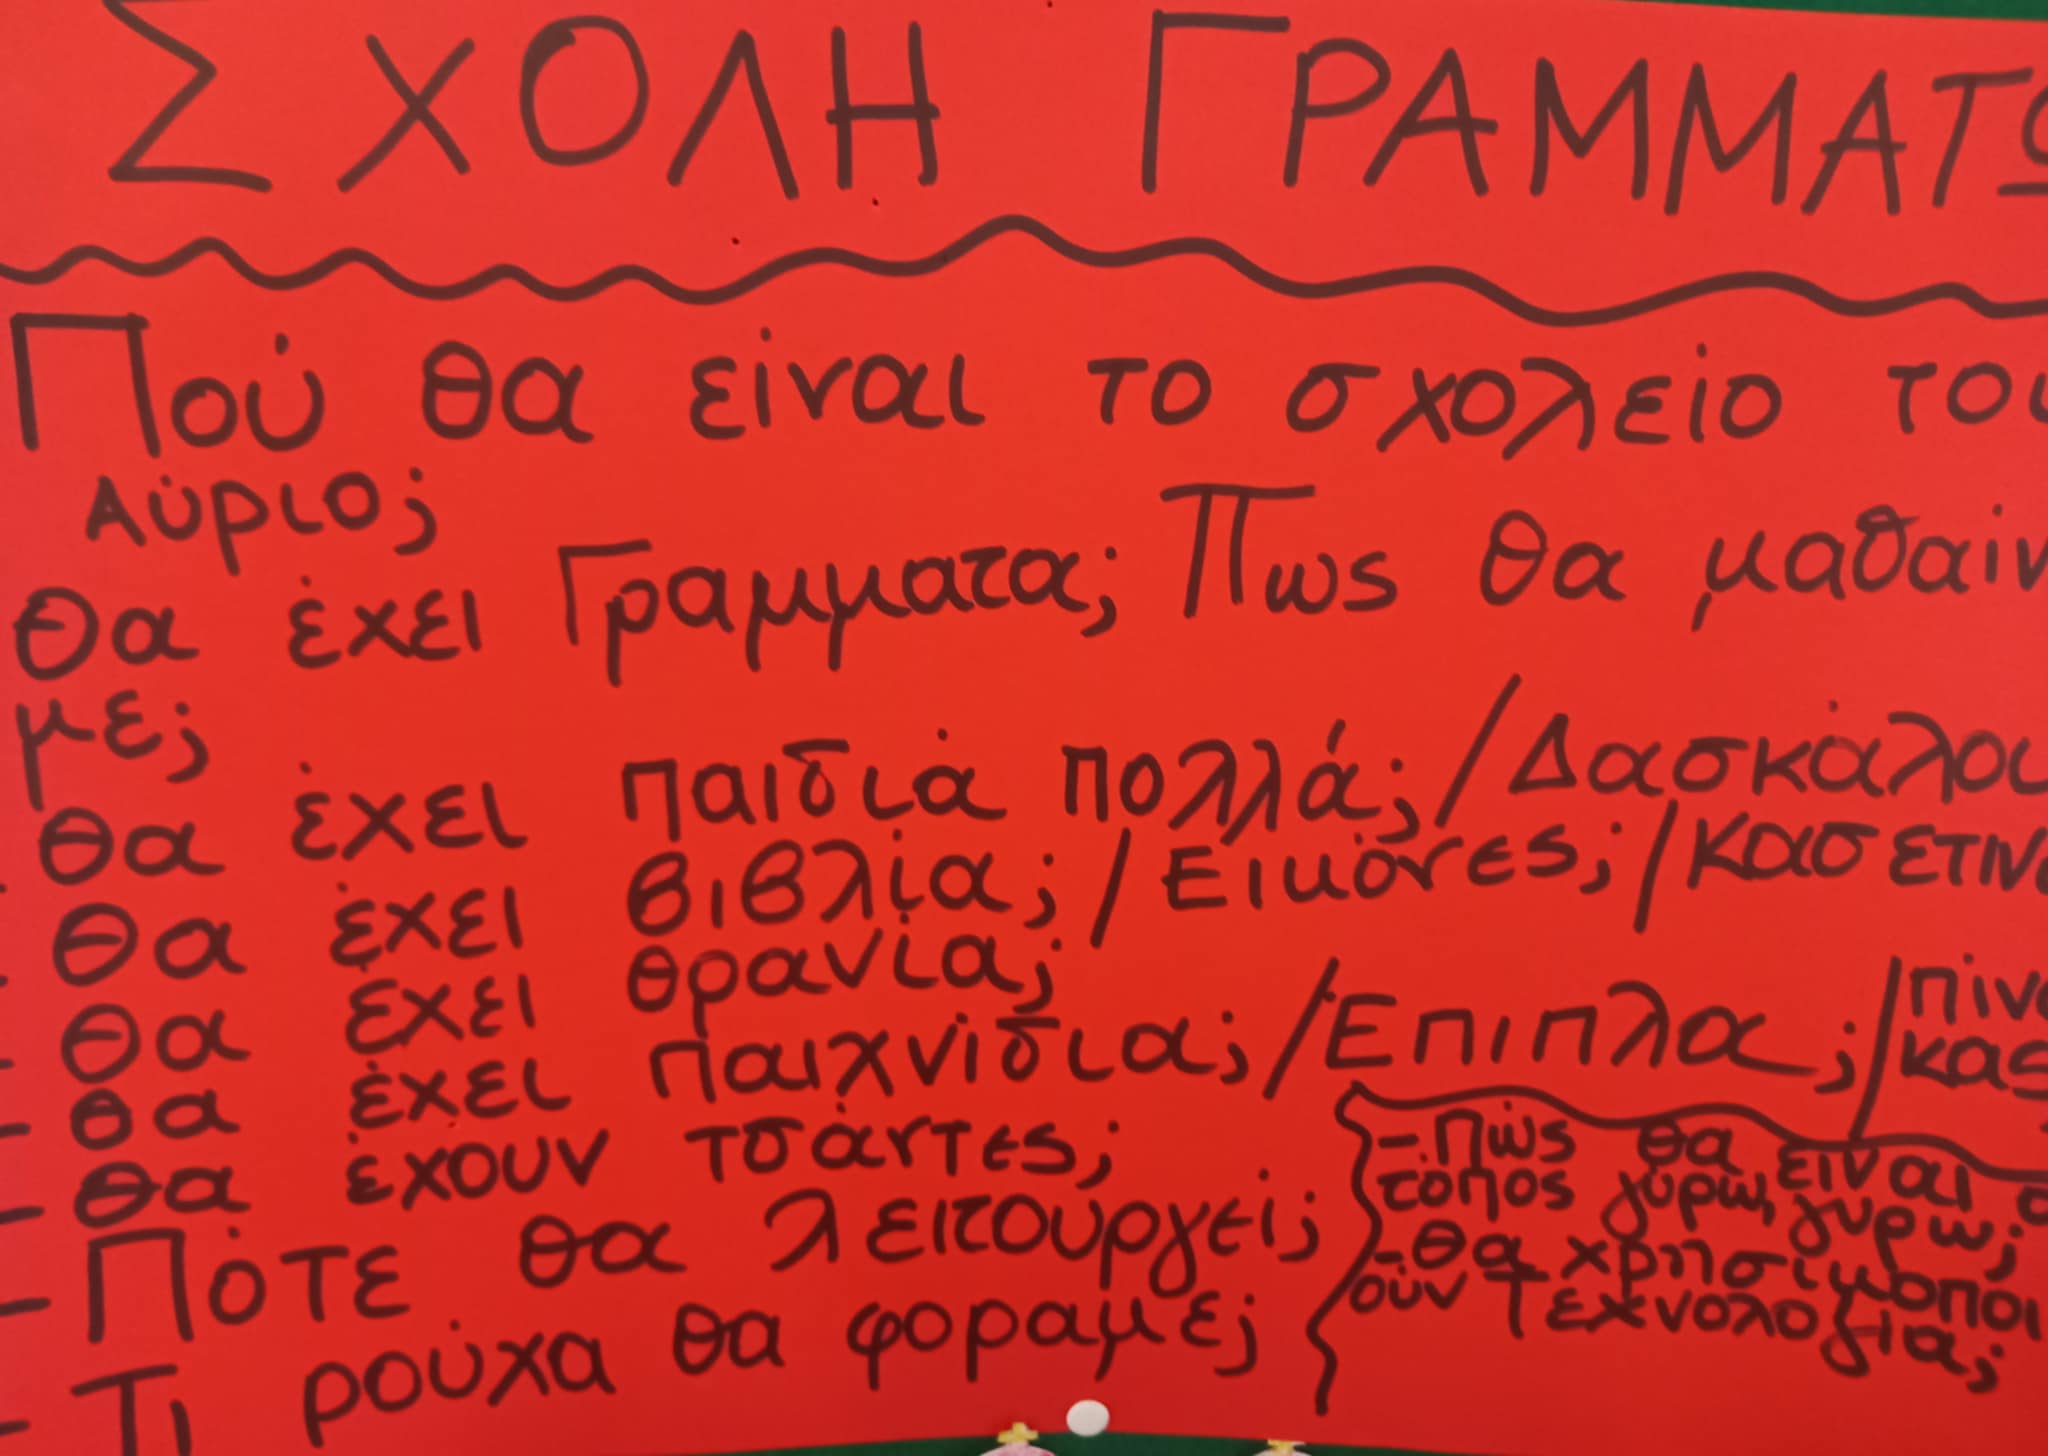 ΣΧΟΛΗ ΓΡΑΜΜΑΤΩ
Πού θα είναι το σχολείο του
Αύριο;
Θα έχει Γράμματα; Πως θα μαθαίν
με;
Θα έχει παιδιά πολλά; / Δασκάλου
Θα έχει βιβλία; / Εικόνες; / Κασετίν
Θα έχει θρανία;
Θα έχει παιχνίδια; / Έπιπλα; / πίνα
κας
- Θα έχουν τσάντες;
- Πότε θα λειτουργεί;
- Τι ρούχα θα φοράμε;
- Πώς θα είναι ο
τόπος γύρω, γύρω;
- Θα χρησιμοποι
ούν Τεχνολογία;